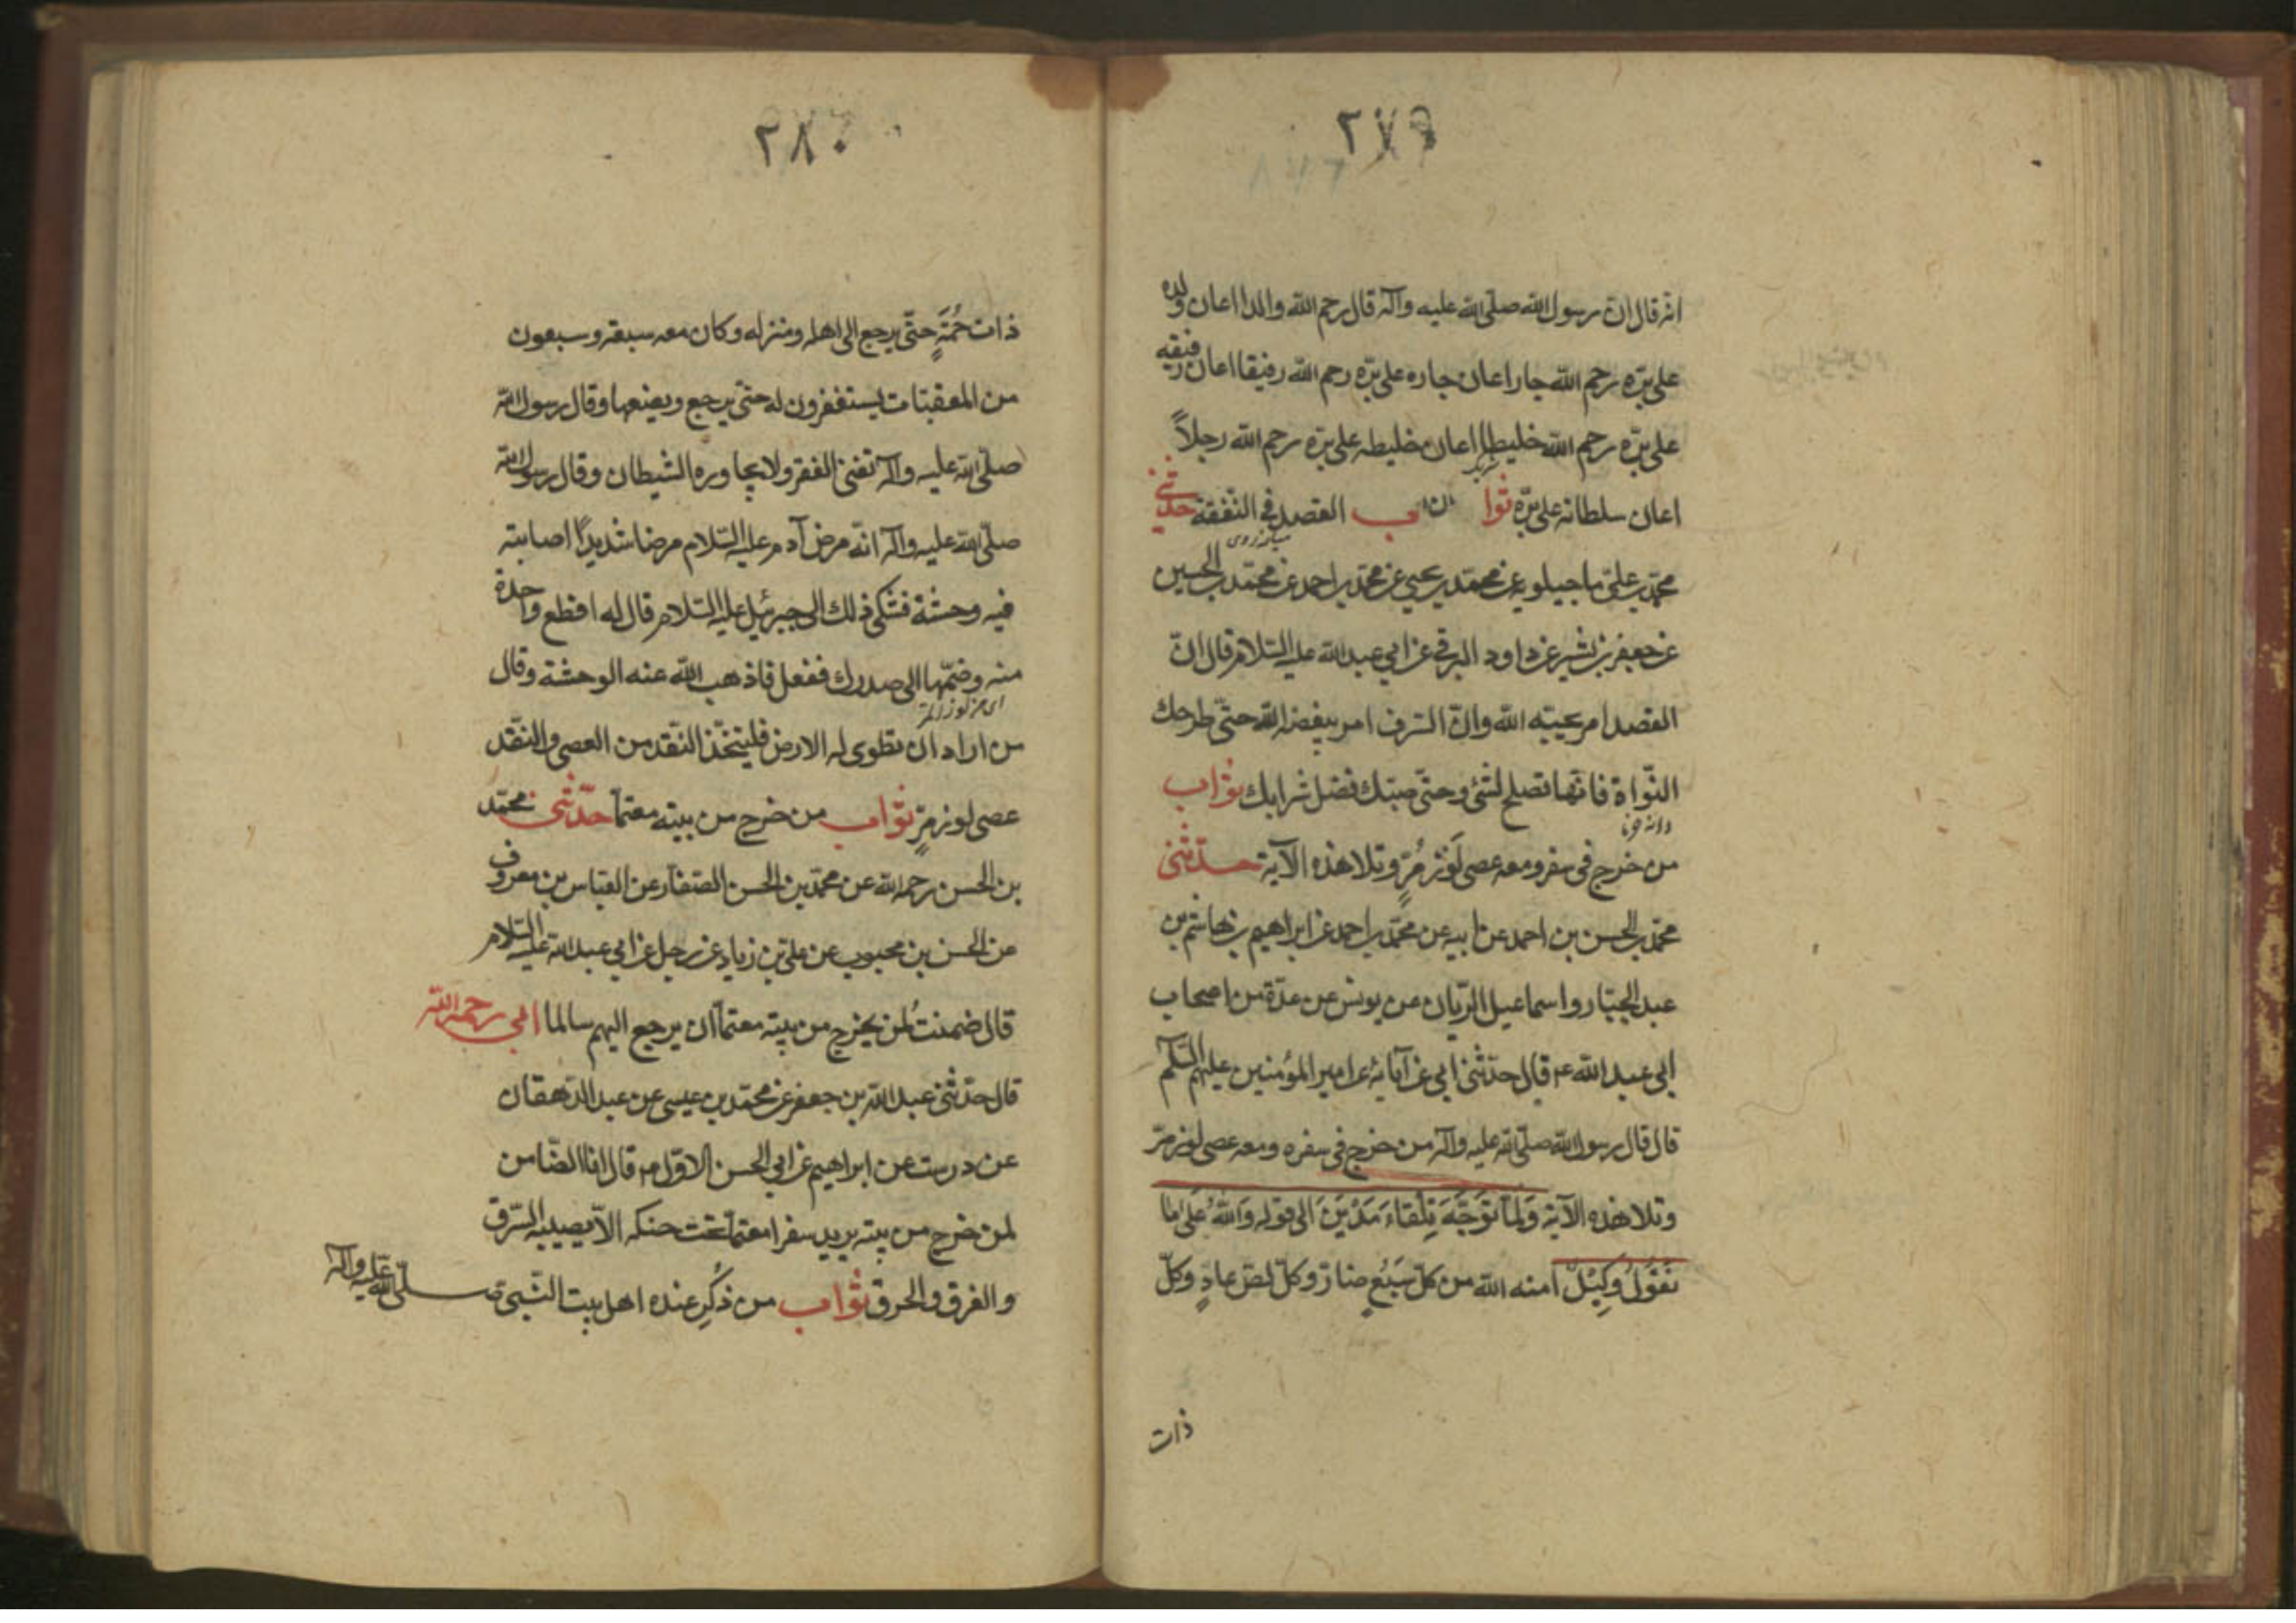 ٢٧٩
انه قال ان رسول الله صلى الله عليه وآله قال رحم الله والدا اعان ولده
على برّه رحم الله جارا اعان جاره على برّه رحم الله رفيقا اعان رفيقه
على برّه رحم الله خليطا اعان خليطه على برّه رحم الله رجلاً
اعان سلطانه على برّه ثواب القصد فى النّفقة حدّثنى
ميانه روى
محمّد بن علىّ ماجيلويه عن محمّد بن يحيى عن محمّد بن احمد عن محمّد بن الحسين
عن جعفر بن بشير عن داود البرقى عن ابى عبد الله عليه السّلام قال انّ
القصد امر يحبّه الله وانّ السّرف امر يبغضه الله حتّى طرحك
النّواة فانّها تصلح لشئ وحتّى صبّك فضل شرابك ثواب
دانه خرما
من خرج فى سفر ومعه عصى لَوْز مُرّ وتلا هذه الآية حدّثنى
محمّد بن الحسن بن احمد عن ابيه عن محمّد بن احمد عن ابراهيم بن هاشم بن
عبد الجبّار واسماعيل الريّان عن يونس عن عدّة من اصحاب
ابى عبد الله ع قال حدّثنى ابى عن آبائه عن امير المؤمنين عليهم السّلم
قال قال رسول الله صلّى الله عليه وآله من خرج فى سفره ومعه عصى لوز مرّ
وتلا هذه الآية وَلَمّا تَوَجَّهَ تِلْقاءَ مَدْيَنَ الى قوله وَاللهُ عَلى ما
نَقُولُ وَكِيلٌ آمنه الله من كلّ سَبُعٍ ضارّ وكلّ لصّ عادٍ وكلّ
ذات
٢٨٠
ذات حُمَةٍ حتّى يرجع الى اهله ومنزله وكان معه سبعة وسبعون
من المعقّبات يستغفرون له حتّى يرجع ويضعها وقال رسول الله
صلّى الله عليه وآله تنفى الفقر ولا يجاوره الشيطان وقال رسول الله
صلّى الله عليه وآله انّه مرض آدم عليه السّلام مرضا شديدًا اصابته
فيه وحشة فشكى ذلك الى جبرئيل عليه السّلام قال له اقطع واحدة
منه وضمّها الى صدرك ففعل فاذهب الله عنه الوحشة وقال
من اراد ان تطوى له الارض فليتّخذ النّقد من العصى والنّقد
عصى لوز مرّ ثواب من خرج من بيته معتمّا حدّثنى محمّد
بن الحسن رحمه الله عن محمّد بن الحسن الصّفّار عن العبّاس بن معروف
عن الحسن بن محبوب عن علىّ بن زياد عن رجل عن ابى عبد الله عليه السّلام
قال ضمنتُ لمن يخرج من بيته معتمّا ان يرجع اليهم سالما ابى رحمه الله
قال حدّثنى عبد الله بن جعفر عن محمّد بن عيسى عن عبد الدّهقان
عن درست عن ابراهيم عن ابى الحسن الاوّل ع قال انا الضّامن
لمن خرج من بيته يريد سفرا معتمّا تحت حنكه الّا يصيبه السّرق
والغرق والحرق ثواب من ذُكِر عنده اهل بيت النّبى صلّى الله عليه وآله